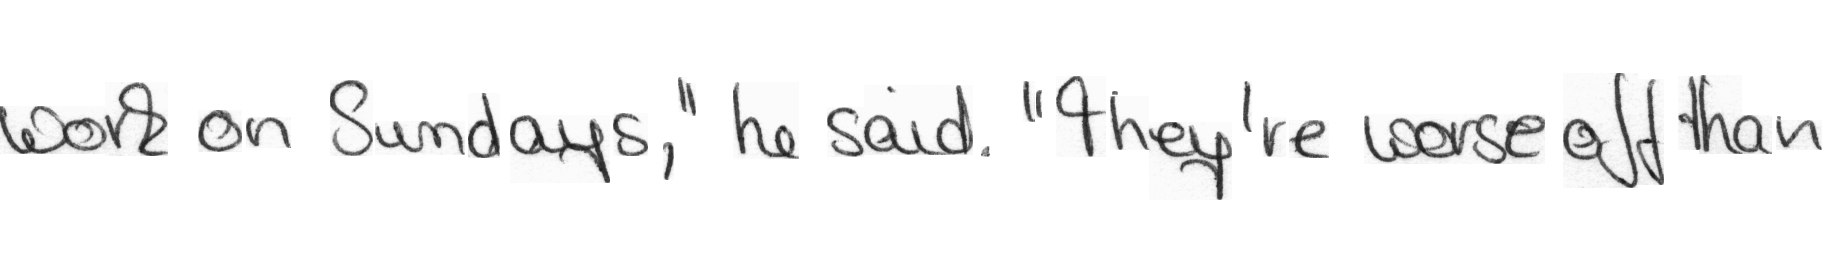 work on Sundays," he said. "They're worse off than